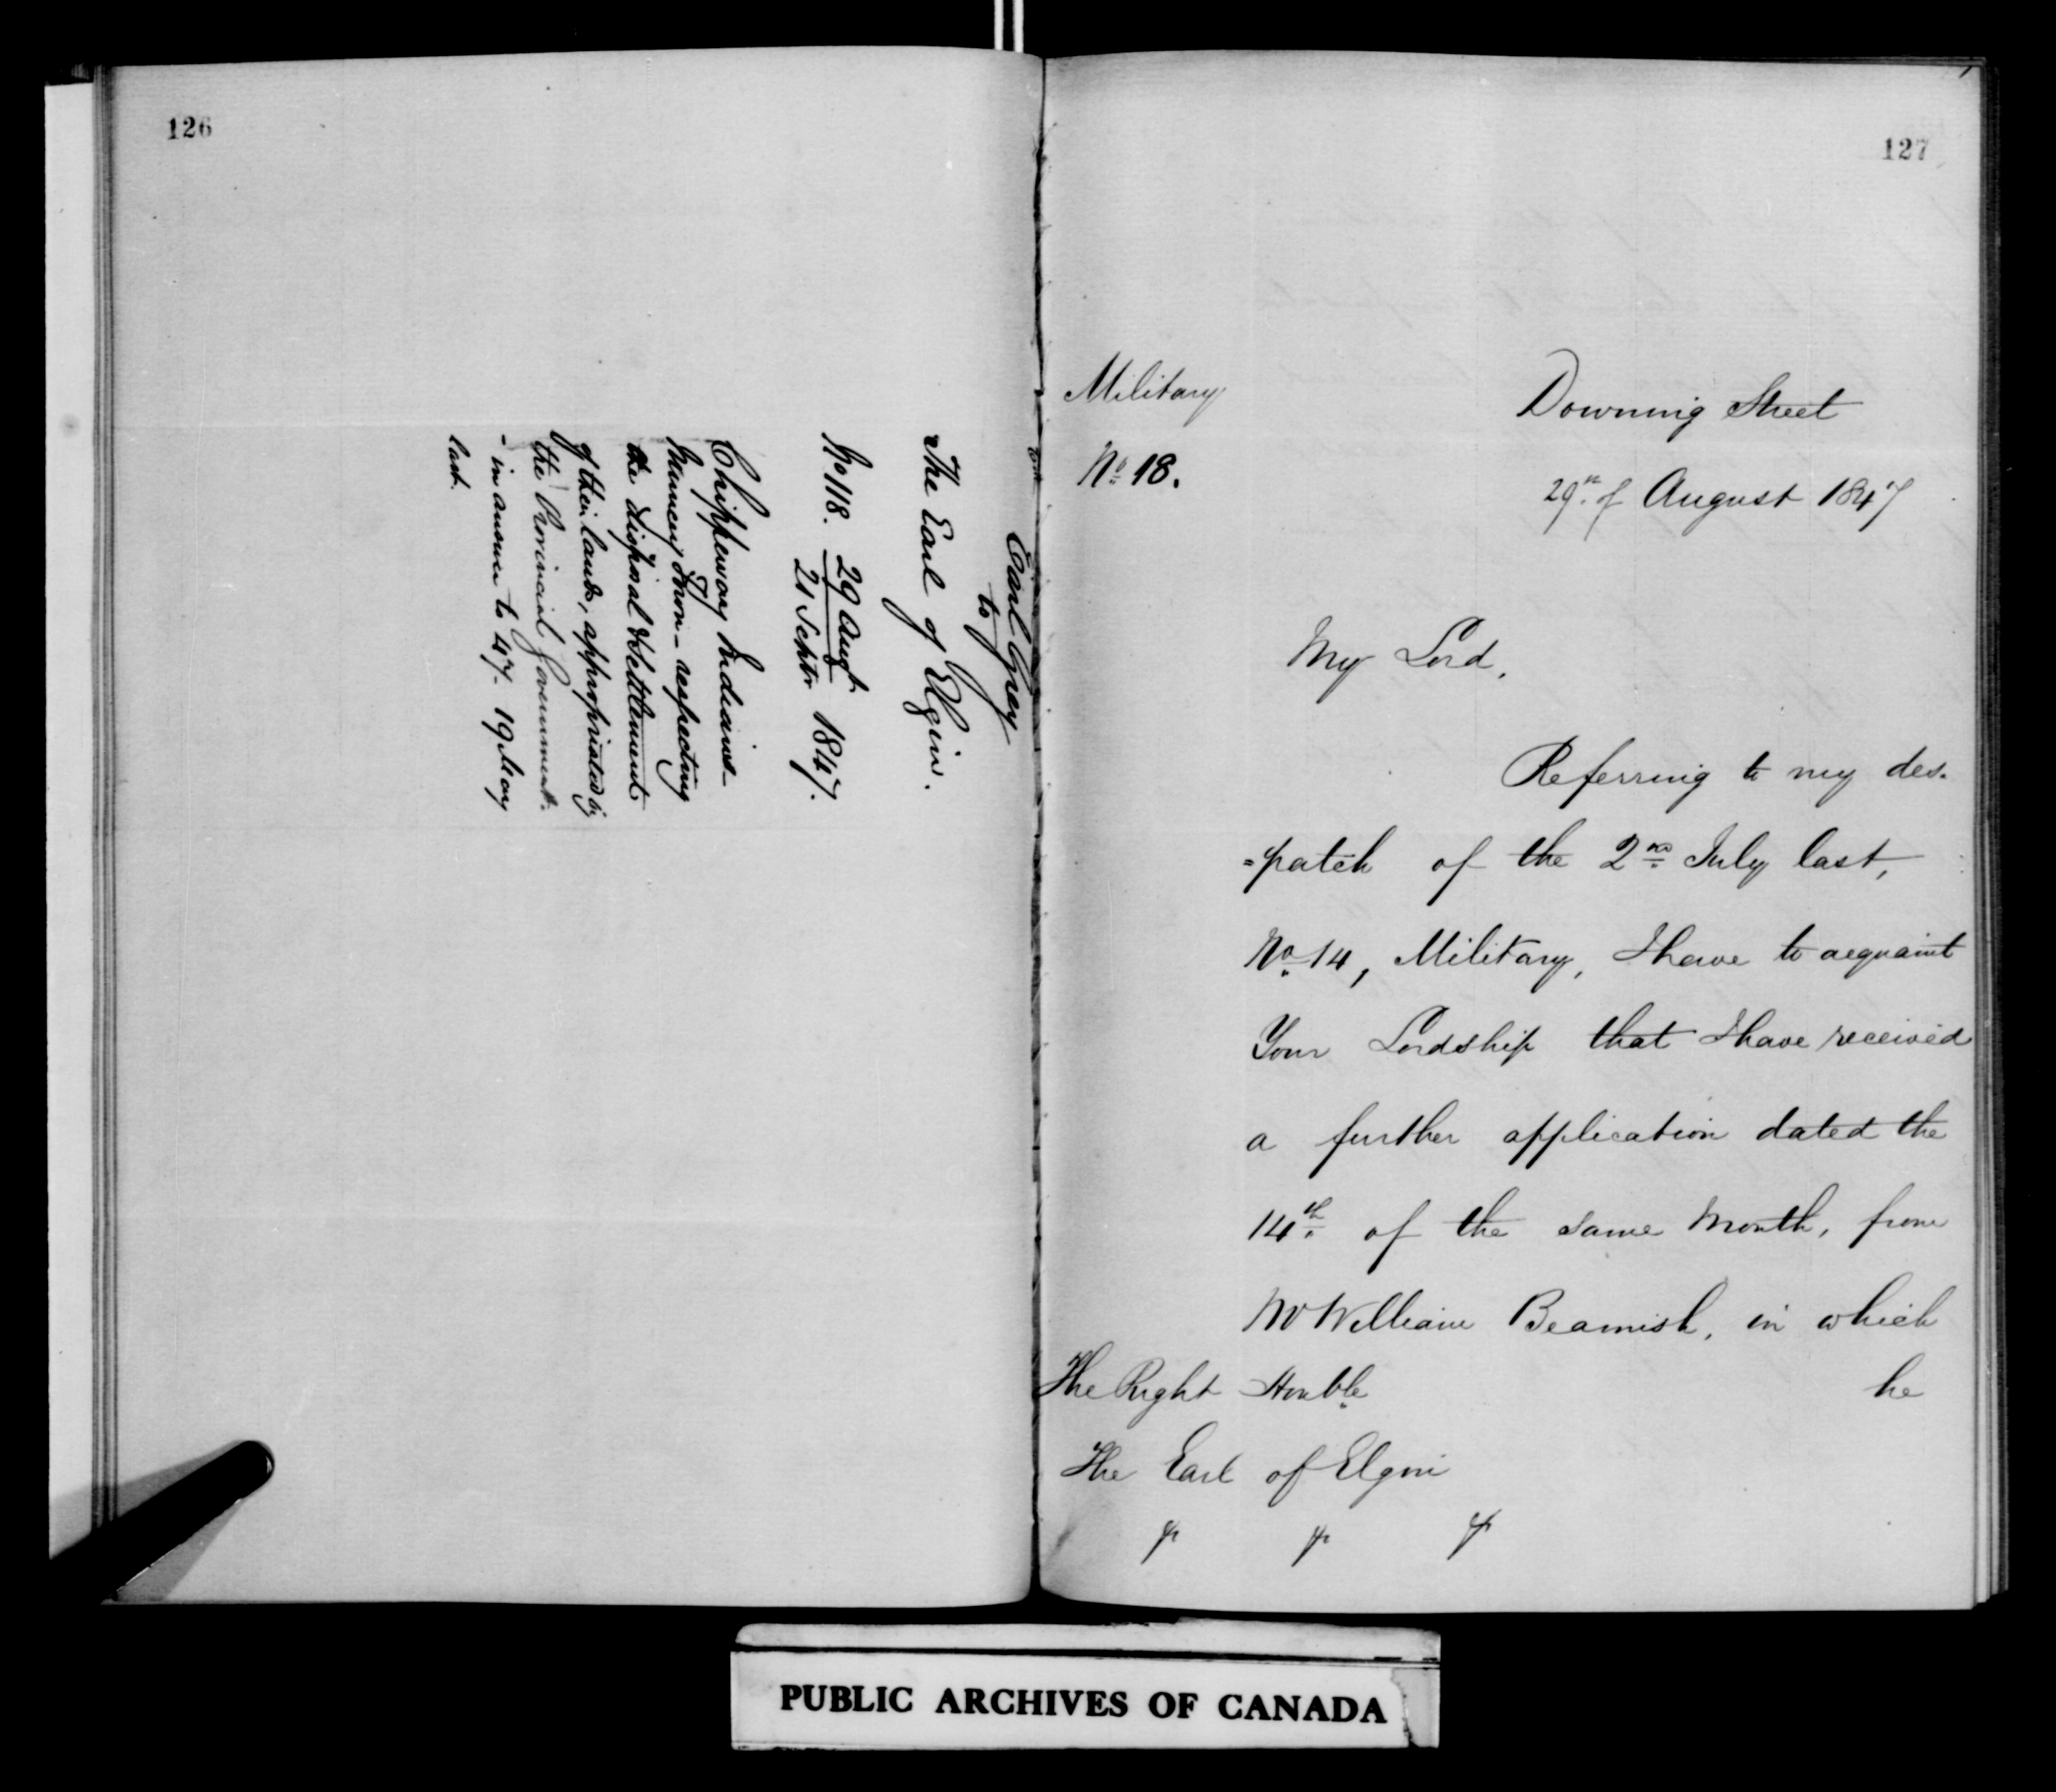 126
Earl Grey
to
The Earl of Elgin.
No 118. 29 Augt
21 Septr 1847.
Chippeway Indians-
Muncey Town - respecting
the disposal & settlement
of their lands, appropriated by
the Provincial Government.
- in answer to 47. 19 May
last.
127
Military
No 18.
Downing Street
29th of August 1847
My Lord,
Referring to my des-
=patch of the 2nd July last,
No 14, Military, I have to acquaint
Your Lordship that I have received
a further application dated the
14th of the same Month, from
Mr William Beamish, in which
he
The Right Honble
The Earl of Elgin
PUBLIC ARCHIVES OF CANADA